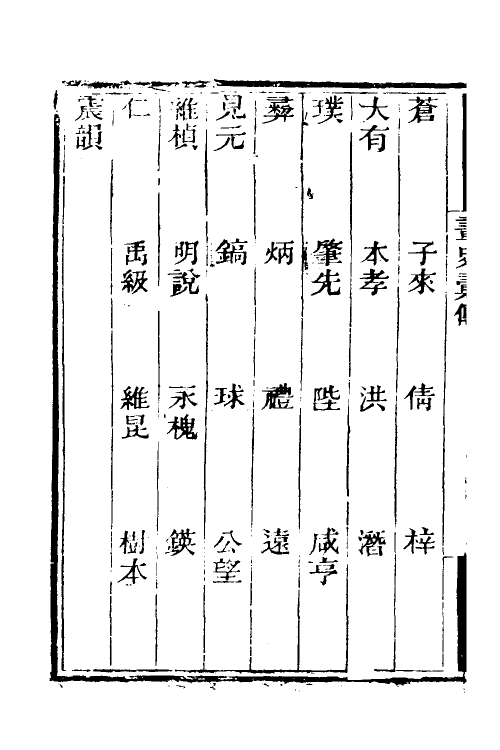 畫史彙傳
蒼 子來 倩 梓
大有 本孝 洪 潛
璞 肇先 陛 咸亨
彝 炳 禮 遠
見元 鎬 球 公望
維楨 明說 永槐 鍈
仁 禹級 維昆 樹本
震韻